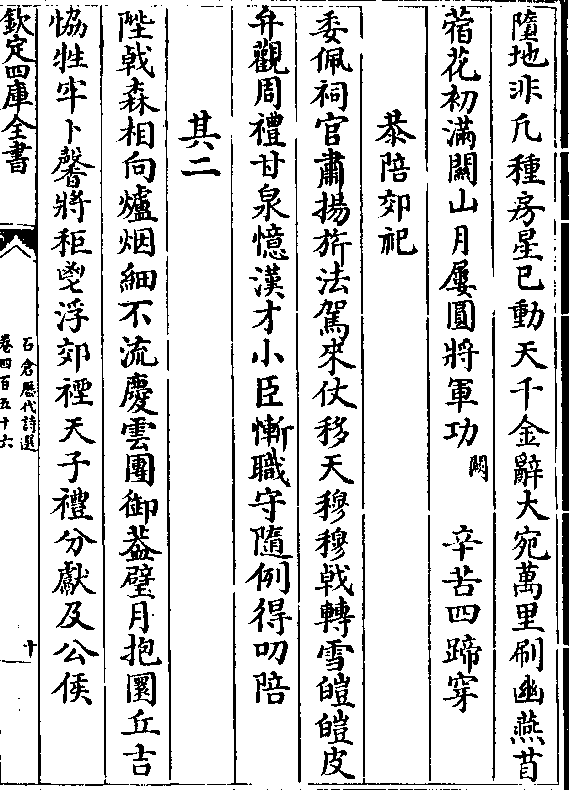 墮地非凡種房星已動天千金辭大宛萬里刷幽燕苜
蓿花初滿關山月屢圓將軍功闕辛苦四蹄穿
恭陪郊祀
委佩祠官肅揚旂法駕來仗移天穆穆戟轉雪皚皚皮
弁觀周禮甘泉憶漢才小臣慚職守隨例得叨陪
其二
陛戟森相向爐烟細不流慶雲團御葢璧月抱圜丘吉
恊牲牢卜馨將秬鬯浮郊禋天子禮分獻及公侯
欽定四庫全書
石倉歷代詩選
卷四百五十六
十